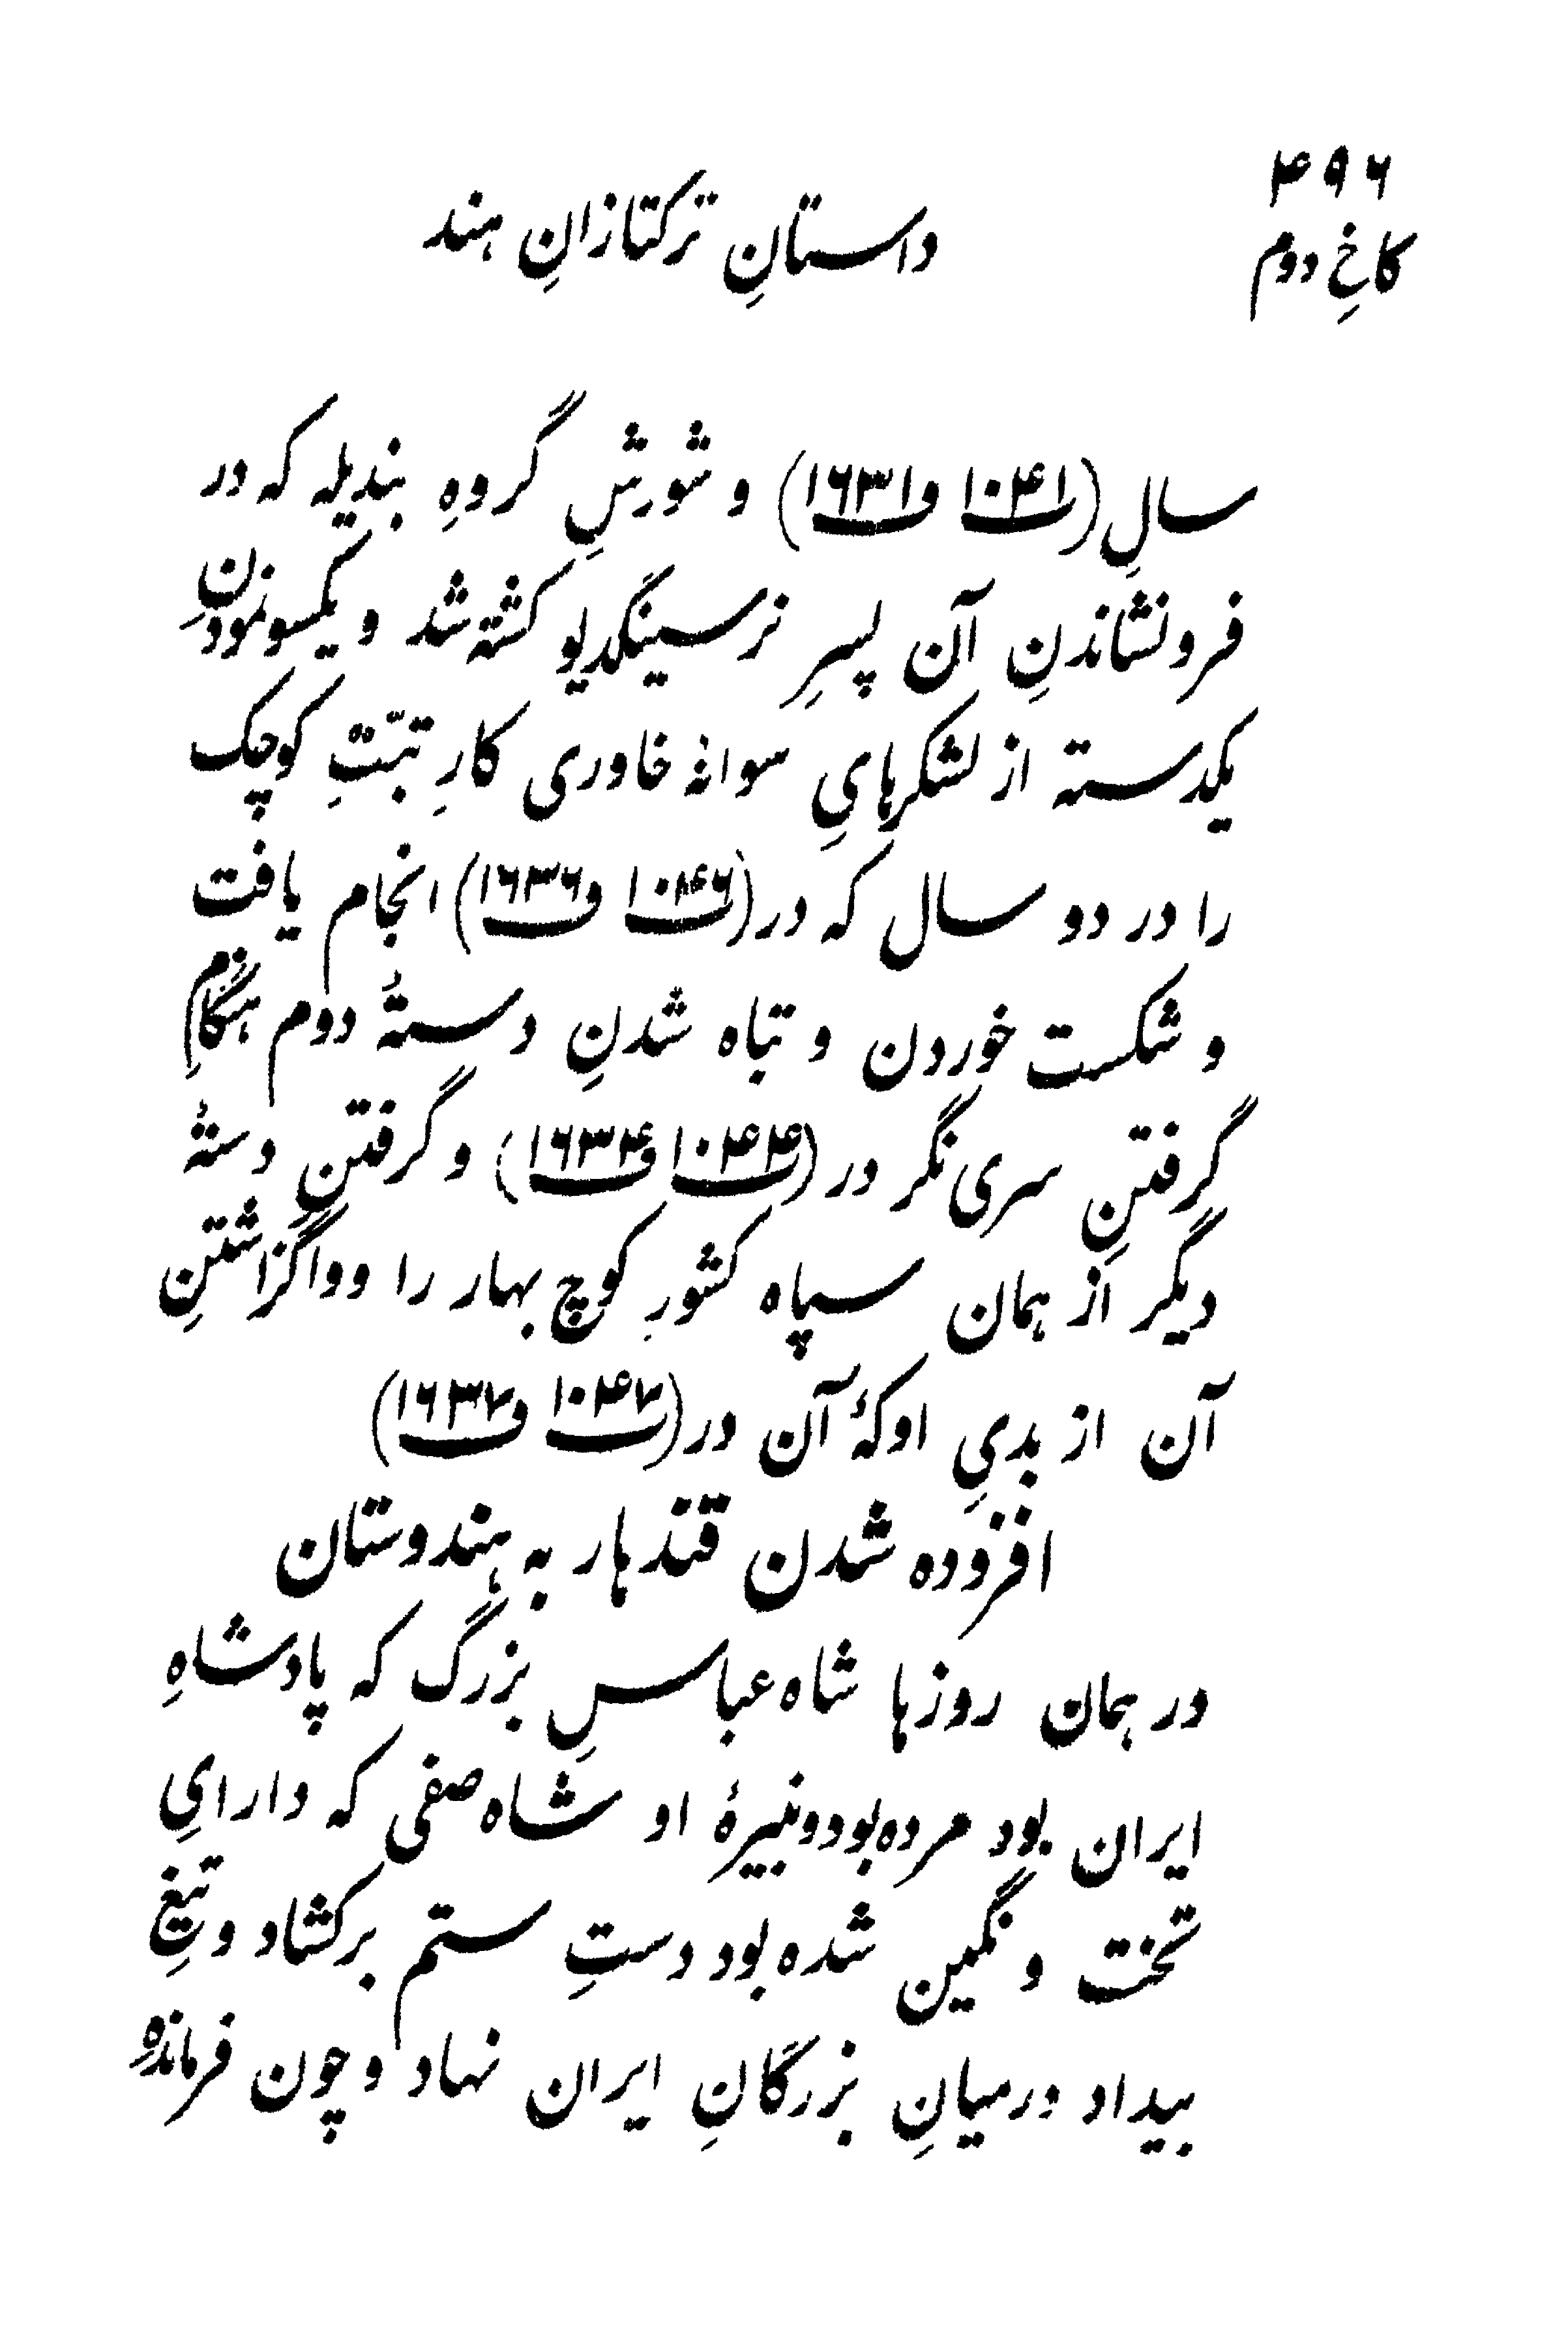 ۴۹۶
کاخِ دوم
داستانِ ترکتازانِ هند
سالِ (۱۰۴۱ و ۱۶۳۱) و شورشِ گروهِ بندیله که در
فرونشاندنِ آن پسرِ نرسینگدیو کشته شد و یکسو نمودنِ
یکدسته از لشکرهایِ سوانهٔ خاوری کارِ تبّتِ کوچک
را در دو سال که در (۱۰۴۶ و ۱۶۳۶) انجام یافت
و شکست خوردن و تباه شدنِ دستهٔ دوم هنگامِ
گرفتنِ سری نگر در (۱۰۴۴ و ۱۶۳۴) و گرفتنِ دستهٔ
دیگر از همان سپاه کشورِ کوچ بهار را وواگزاشتنِ
آن از بدیِ اوکهٔ آن در (۱۰۴۷ و ۱۶۳۷)
افزوده شدن قندهار به هندوستان
در همان روزها شاه عباسِ بزرگ که پادشاهِ
ایران بود مرده بود و نبیرهٔ او شاه صفی که دارایِ
تخت و نگین شده بود دستِ ستم برکشاد و تیغِ
بیداد درمیانِ بزرگانِ ایران نهاد و چون فرماندهِ